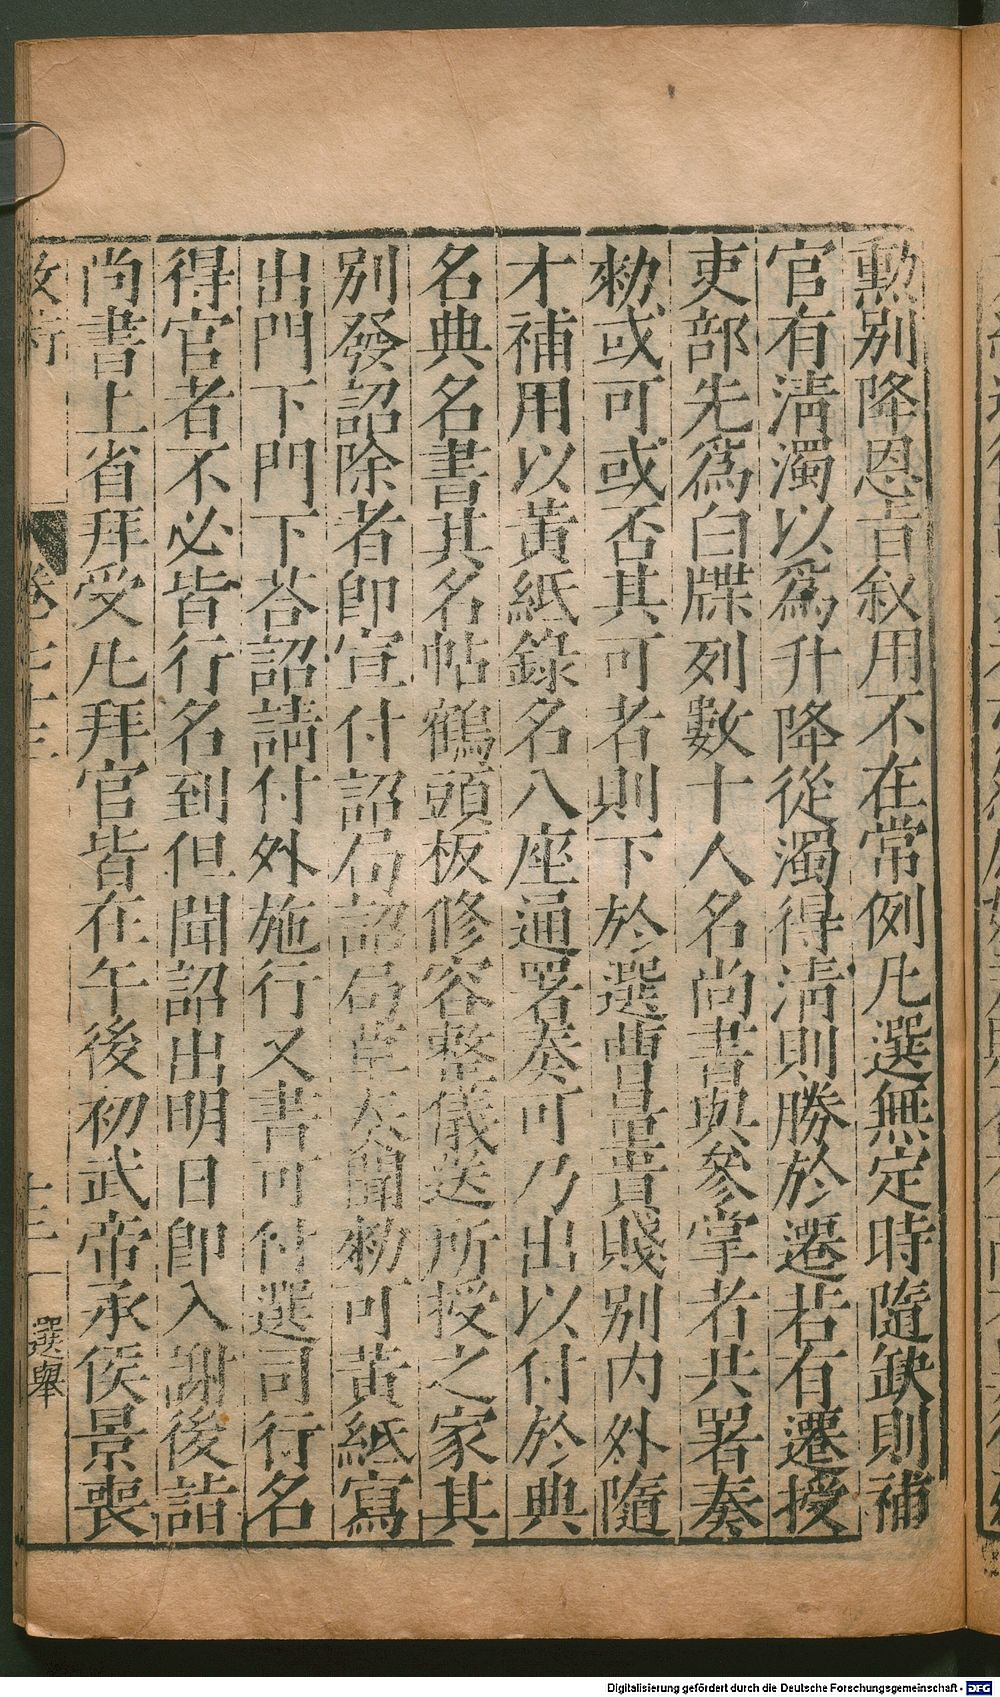 勲別降恩旨叙用不在常例凡選無定時隨缺則補
官有淸濁以爲升降從濁得淸則勝於遷若有遷授
吏部先爲白牒列數十人名尚書與參掌者共署奏
勑或可或否其可者則下於選曹量貴賤別內外隨
才補用以黃紙錄名八座通署奏可乃出以付於典
名典名書其名帖鶴頭板修容整儀送所授之家其
別發詔除者卽宣付詔局詔局草奏聞勑可黃紙寫
出門下門下荅詔請付外施行又書可付選司行名
得官者不必皆行名到但聞詔出明日卽入謝後詣
尚書上省拜受凡拜官皆在午後初武帝承侯景喪
卷 選舉
Digitalisierung gefördert durch die Deutsche Forschungsgemeinschaft - DFG